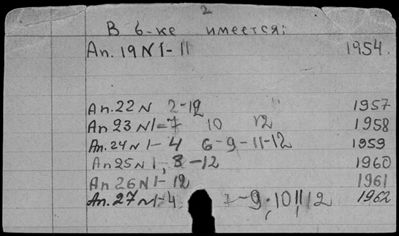 2
В б-ке имеется:
Ап. 19 N 1-11 1954.
Ап. 22 N 2-12 1957
Ап 23 N 1-7 10 12 1958
Ап. 24 N 1-4 6-9-11-12 1959
Ап 25 N 1, 3-12 1960
Ап 26 N 1-12 1961
Ап. 27 N 1-4 7-9, 10, 11, 12 1962